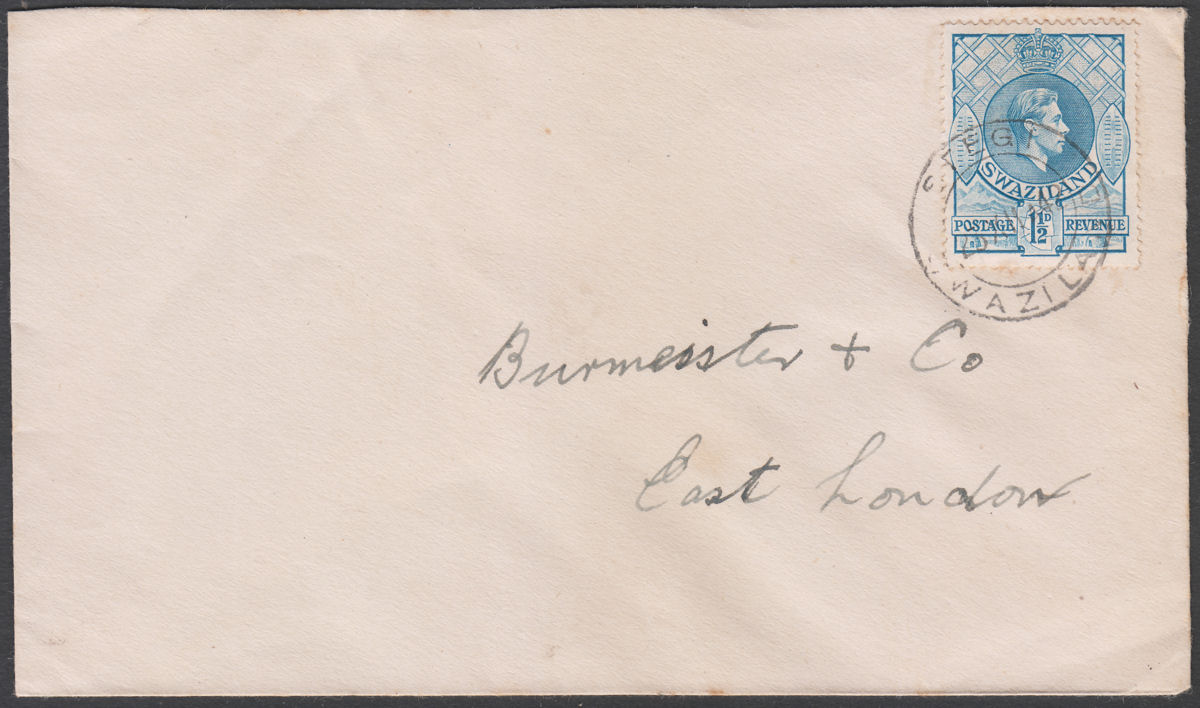 SWAZILAND
POSTAGE 1½D REVENUE
Burmeister & Co
East London